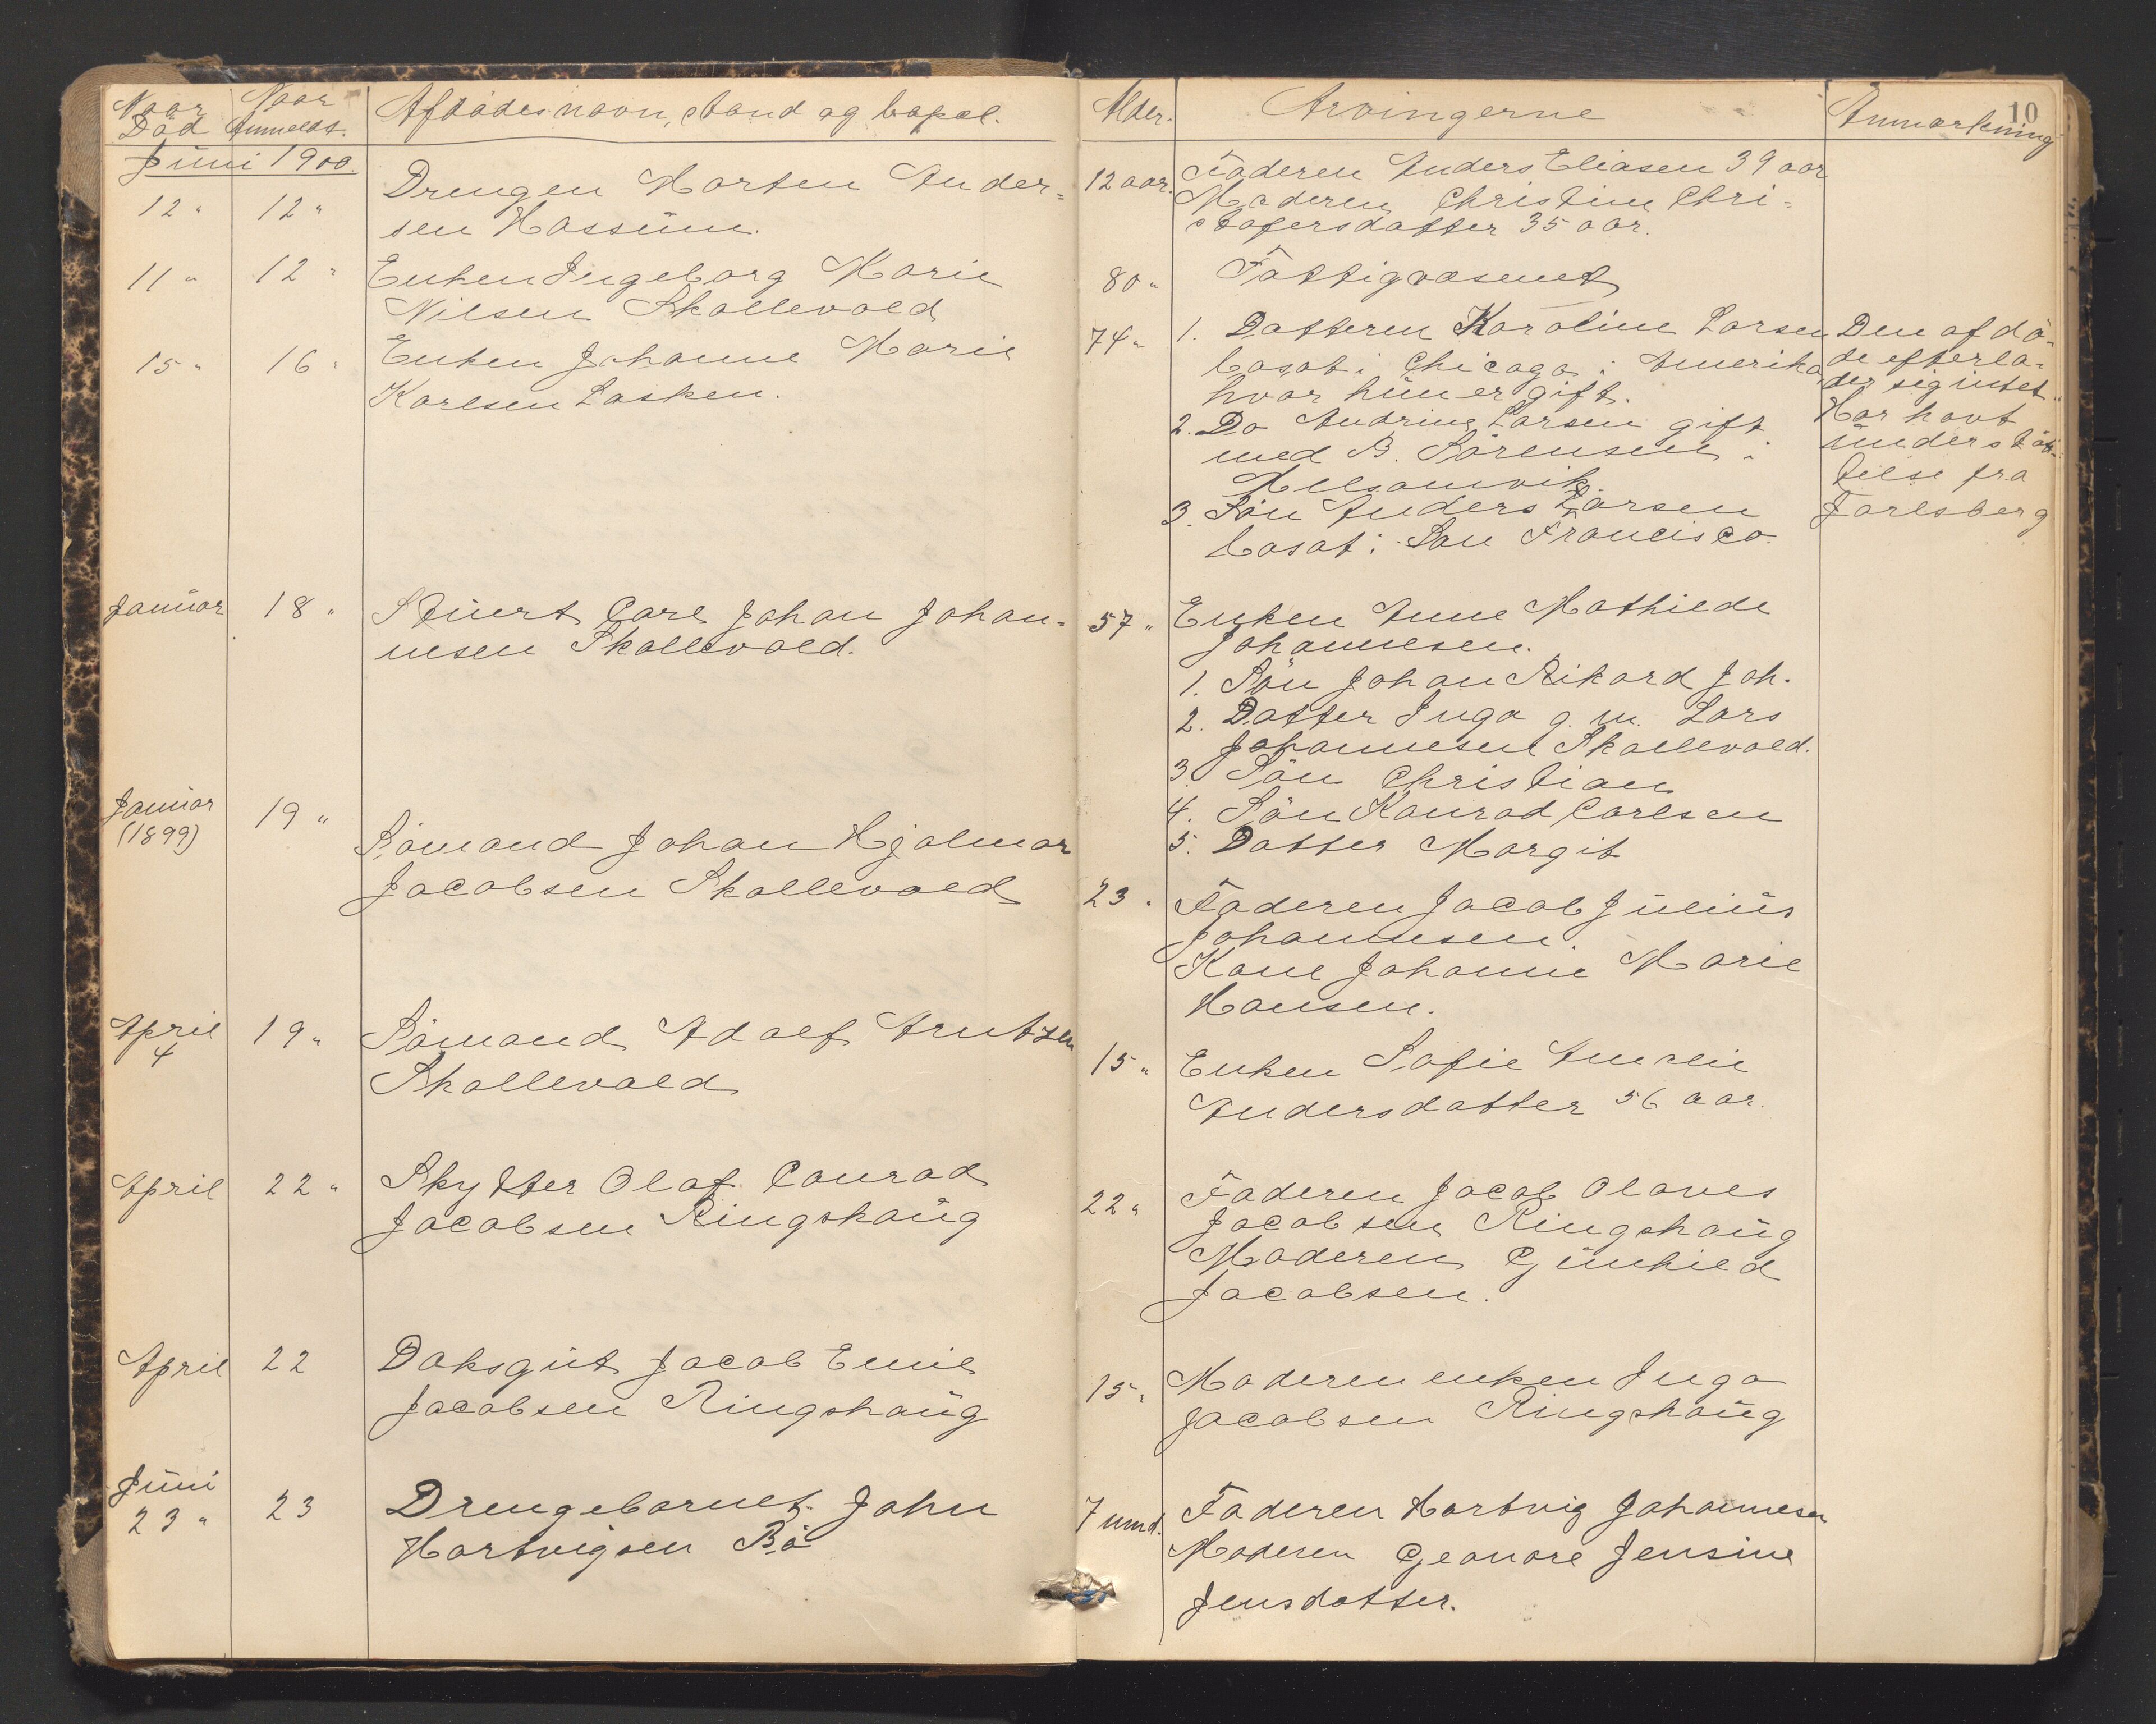 Naar Død
Naar Anmeldt.
Afdødes navn, stand og bopæl.
Juni 1900.
12 " 12 " Drengen Marten Ander=
sen Hassum.
11 " 12 " Enken Ingeborg Marie
Nilsen Skallevold
15 " 16 " Enken Johanne Marie
Karlsen Lasken.
Januar 18 " Stuert Carl Johan Johan-
nesen Skallevold.
Januar
(1899) 19 "
Sømand Johan Hjalmar
Jacobsen Skallevold
April
4 19 " Sømand Adolf Arntzen
Skallevold
April 22 " Skytter Olaf Conrad
Jacobsen Ringshaug
April 22 Daksgut Jacob Emil
Jacobsen Ringshaug
Juni
23 " 23 Drengebarnet John
Hartvigsen Bø
Alder.
Arvingerne
Anmærkning
10
12 aar. Faderen Anders Eliasen 39 aar
Moderen Christine Chri=
stofersdatter 35 aar.
80 " Fattigvæsenet
74 " 1. Datteren Karoline Larsen
bosat i Chicago i Amerika
hvor hun er gift.
2. Do Andrine Larsen gift
med B. Sørensen i
Melsomvik.
3. Søn Anders Larsen
bosat i San Francisco.
Den afdø-
de efterla-
der sig intet.
Har havt
understøt-
telse fra
Jarlsberg
57 " Enken Anne Mathilde
Johannesen.
1. Søn Johan Rikard Joh.
2. Datter Inga g. m. Lars
Johannesen Skallevold.
3. Søn Christian
4. Søn Konrad Carlsen
5. Datter Margit
23 " Faderen Jacob Julius
Johannesen.
Kone Johanne Marie
Hansen.
15 " Enken Sofie Amalie
Andersdatter 56 aar.
22 " Faderen Jacob Olaves
Jacobsen Ringshaug
Moderen Gunhild
Jacobsen.
15 " Moderen enken Inga
Jacobsen Ringshaug
7 mnd. Faderen Hartvig Johannesen
Moderen Geanore Jensine
Jensdatter.